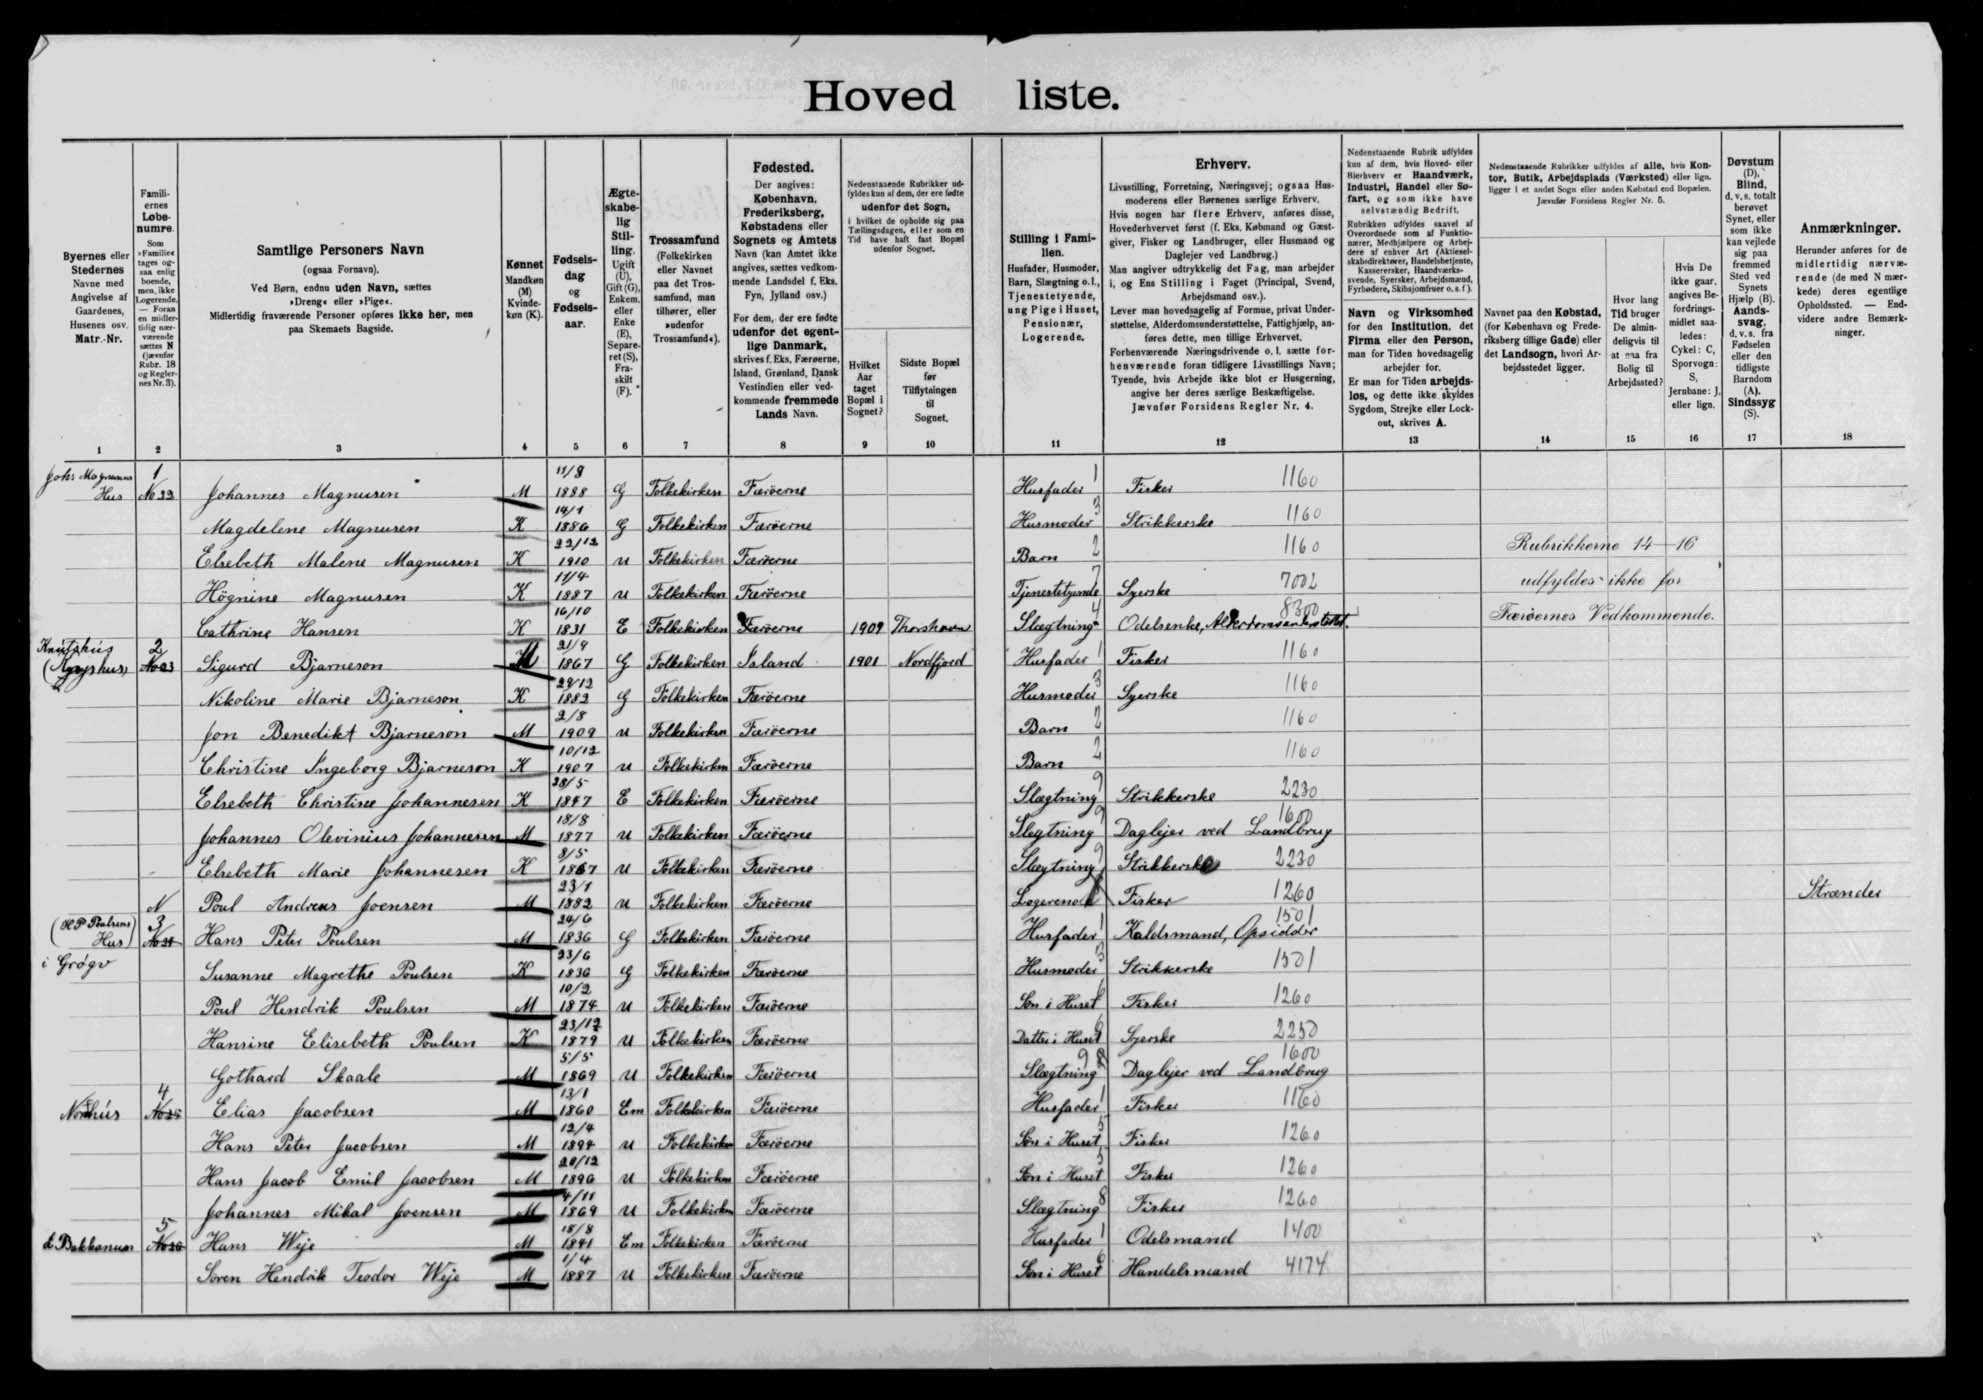 Hovedliste.
Byernes eller Stedernes Navne med Angivelse af Gaardenes, Husenes osv. Matr.-Nr.
Familiernes Løbenumre. Som »Familie« tages ogsaa enlig boende, men ikke Logerende. — Foran en midlertidig nærværende sættes N (jævnfør Rubr. 18 og Regler-nes Nr. 3).
Samtlige Personers Navn (ogsaa Fornavn). Ved Børn, endnu uden Navn, sættes »Dreng« eller »Pige«. Midlertidig fraværende Personer opføres ikke her, men paa Skemaets Bagside.
Kønnet Mandkøn (M) Kvindekøn (K).
Fødselsdag og Fødselsaar.
Ægteskabelig Stilling. Ugift (U), Gift (G), Enkem. eller Enke (E), Separeret (S), Fraskilt (F).
Trossamfund (Folkekirken eller Navnet paa det Trossamfund, man tilhører, eller »udenfor Trossamfund«).
Fødested. Der angives: København, Frederiksberg, Købstadens eller Sognets og Amtets Navn (kan Amtet ikke angives, sættes vedkommende Landsdel f. Eks. Fyn, Jylland osv.) For dem, der ere fødte udenfor det egentlige Danmark, skrives f. Eks. Færøerne, Island, Grønland, Dansk Vestindien eller vedkommende fremmede Lands Navn.
Nedenstaaende Rubrikker udfyldes kun af dem, der ere fødte udenfor det Sogn, i hvilket de opholde sig paa Tællingsdagen, eller som en Tid have haft fast Bopæl udenfor Sognet.
Hvilket Aar taget Bopæl i Sognet?
Sidste Bopæl før Tilflytningen til Sognet.
Stilling i Familien. Husfader, Husmoder, Barn, Slægtning o.l., Tjenestetyende, ung Pige i Huset, Pensionær, Logerende.
Erhverv. Livsstilling, Forretning, Næringsvej; ogsaa Husmoderens eller Børnenes særlige Erhverv. Hvis nogen har flere Erhverv, anføres disse, Hovederhvervet først (f. Eks. Købmand og Gæstgiver, Fisker og Landbruger, eller Husmand og Daglejer ved Landbrug.) Man angiver udtrykkelig det Fag, man arbejder i, og Ens Stilling i Faget (Principal, Svend, Arbejdsmand osv.). Lever man hovedsagelig af Formue, privat Understøttelse, Alderdomsunderstøttelse, Fattighjælp, anføres dette, men tillige Erhvervet. Forhenværende Næringsdrivende o. l. sætte forhenværende foran tidligere Livsstillings Navn; Tyende, hvis Arbejde ikke blot er Husgerning, angive her deres særlige Beskæftigelse. Jævnfør Forsidens Regler Nr. 4.
Nedenstaaende Rubrik udfyldes kun af dem, hvis Hoved- eller Bierhverv er Haandværk, Industri, Handel eller Søfart, og som ikke have selvstændig Bedrift. Rubrikken udfyldes saavel af Overordnede som af Funktionærer, Medhjælpere og Arbejdere af enhver Art (Aktieselskabsdirektører, Handelsbetjente, Kasserersker, Haandværkssvende, Syersker, Arbejdsmænd, Fyrbødere, Skibsjomfruer o. s. f.).
Navn og Virksomhed for den Institution, det Firma eller den Person, man for Tiden hovedsagelig arbejder for. Er man for Tiden arbejdsløs, og dette ikke skyldes Sygdom, Strejke eller Lockout, skrives A.
Nedenstaaende Rubrikker udfyldes af alle, hvis Kontor, Butik, Arbejdsplads (Værksted) eller lign. ligger i et andet Sogn eller anden Købstad end Bopælen. Jævnfør Forsidens Regler Nr. 5.
Navnet paa den Købstad, (for København og Frederiksberg tillige Gade) eller det Landsogn, hvori Arbejdsstedet ligger.
Hvor lang Tid bruger De almindeligvis til at naa fra Bolig til Arbejdssted?
Hvis De ikke gaar, angives Befordringsmidlet saaledes: Cykel: C, Sporvogn: S, Jernbane: J, eller lign.
Døvstum (D), Blind, d. v. s. totalt berøvet Synet, eller som ikke kan vejlede sig paa fremmed Sted ved Synets Hjælp (B). Aandssvag, d. v. s. fra Fødselen eller den tidligste Barndom (A). Sindssyg (S).
Anmærkninger. Herunder anføres for de midlertidig nærværende (de med N mærkede) deres egentlige Opholdssted. — Endvidere andre Bemærkninger.
1 2 3 4 5 6 7 8 9 10 11 12 13 14 15 16 17 18
Johs Magnusens Hus 1 No 22 Johannes Magnusen M 11/8 1888 G Folkekirken Færøerne Husfader 1 Fisker 1160
Magdelene Magnusen K 14/1 1886 G Folkekirken Færøerne Husmoder 3 Strikkerske 1160
Elsebeth Malene Magnusen K 22/12 1910 U Folkekirken Færøerne Barn 2 1160 Rubrikkerne 14–16
Högnine Magnusen K 11/4 1887 U Folkekirken Færøerne Tjenestetyende 7 Syerske 7002 udfyldes ikke for
Cathrine Hansen K 16/10 1831 E Folkekirken Færøerne 1909 Thorshavn Slægtning 4 Odelsenke, Alderdomsunderstøttet. 8300 Færøernes Vedkommende.
Knútshús 2 No 23 Sigurd Bjarneson M 21/9 1867 G Folkekirken Island 1901 Nordfjord Husfader 1 Fisker 1160
Nikoline Marie Bjarneson K 24/12 1882 G Folkekirken Færøerne Husmoder 3 Syerske 1160
Jon Benedikt Bjarneson M 2/8 1909 U Folkekirken Færøerne Barn 2 1160
Christine Ingeborg Bjarneson K 10/12 1907 U Folkekirken Færøerne Barn 2 1160
Elsebeth Christine Johannesen K 28/5 1847 E Folkekirken Færøerne Slægtning 9 Strikkerske 2230
Johannes Olevinius Johannesen M 18/8 1877 U Folkekirken Færøerne Slegtning 9 Daglejer ved Landbrug 1600
Elsebeth Marie Johannesen K 8/5 1867 U Folkekirken Færøerne Slægtning 9 Strikkerske 2230
N Poul Andreas Joensen M 23/1 1882 U Folkekirken Færøerne Logerende Fisker 1260 Strænder
(H P Poulsens Hus) i Grógv 3 Hans Peter Poulsen M 24/6 1836 G Folkekirken Færøerne Husfader 1 Kaldsmand, Opsidder 1501
Susanne Magrethe Poulsen K 23/6 1836 G Folkekirken Færøerne Husmoder 3 Strikkerske 1501
Poul Hendrik Poulsen M 10/2 1874 U Folkekirken Færøerne Søn i Huset 6 Fisker 1260
Hansine Elisebeth Poulsen K 23/12 1879 U Folkekirken Færøerne Datter i Huset 6 Syerske 2250
Gothard Skaale M 5/5 1869 U Folkekirken Færøerne Slægtning 9 8 Daglejer ved Landbrug 1600
Norðhús 4 Elias Jacobsen M 13/1 1860 Em Folkekirken Færøerne Husfader 1 Fisker 1160
Hans Peter Jacobsen M 12/4 1894 U Folkekirken Færøerne Søn i Huset 5 Fisker 1260
Hans Jacob Emil Jacobsen M 20/12 1896 U Folkekirken Færøerne Søn i Huset 5 Fisker 1260
Johannes Mikal Joensen M 4/11 1869 U Folkekirken Færøerne Slægtning 8 Fisker 1260
á Bakkanum 5 Hans Wije M 18/8 1841 Em Folkekirken Færøerne Husfader 1 Odelsmand 1400
Søren Hendrik Teodor Wije M 1/4 1887 U Folkekirken Færøerne Søn i Huset 6 Handelsmand 4174